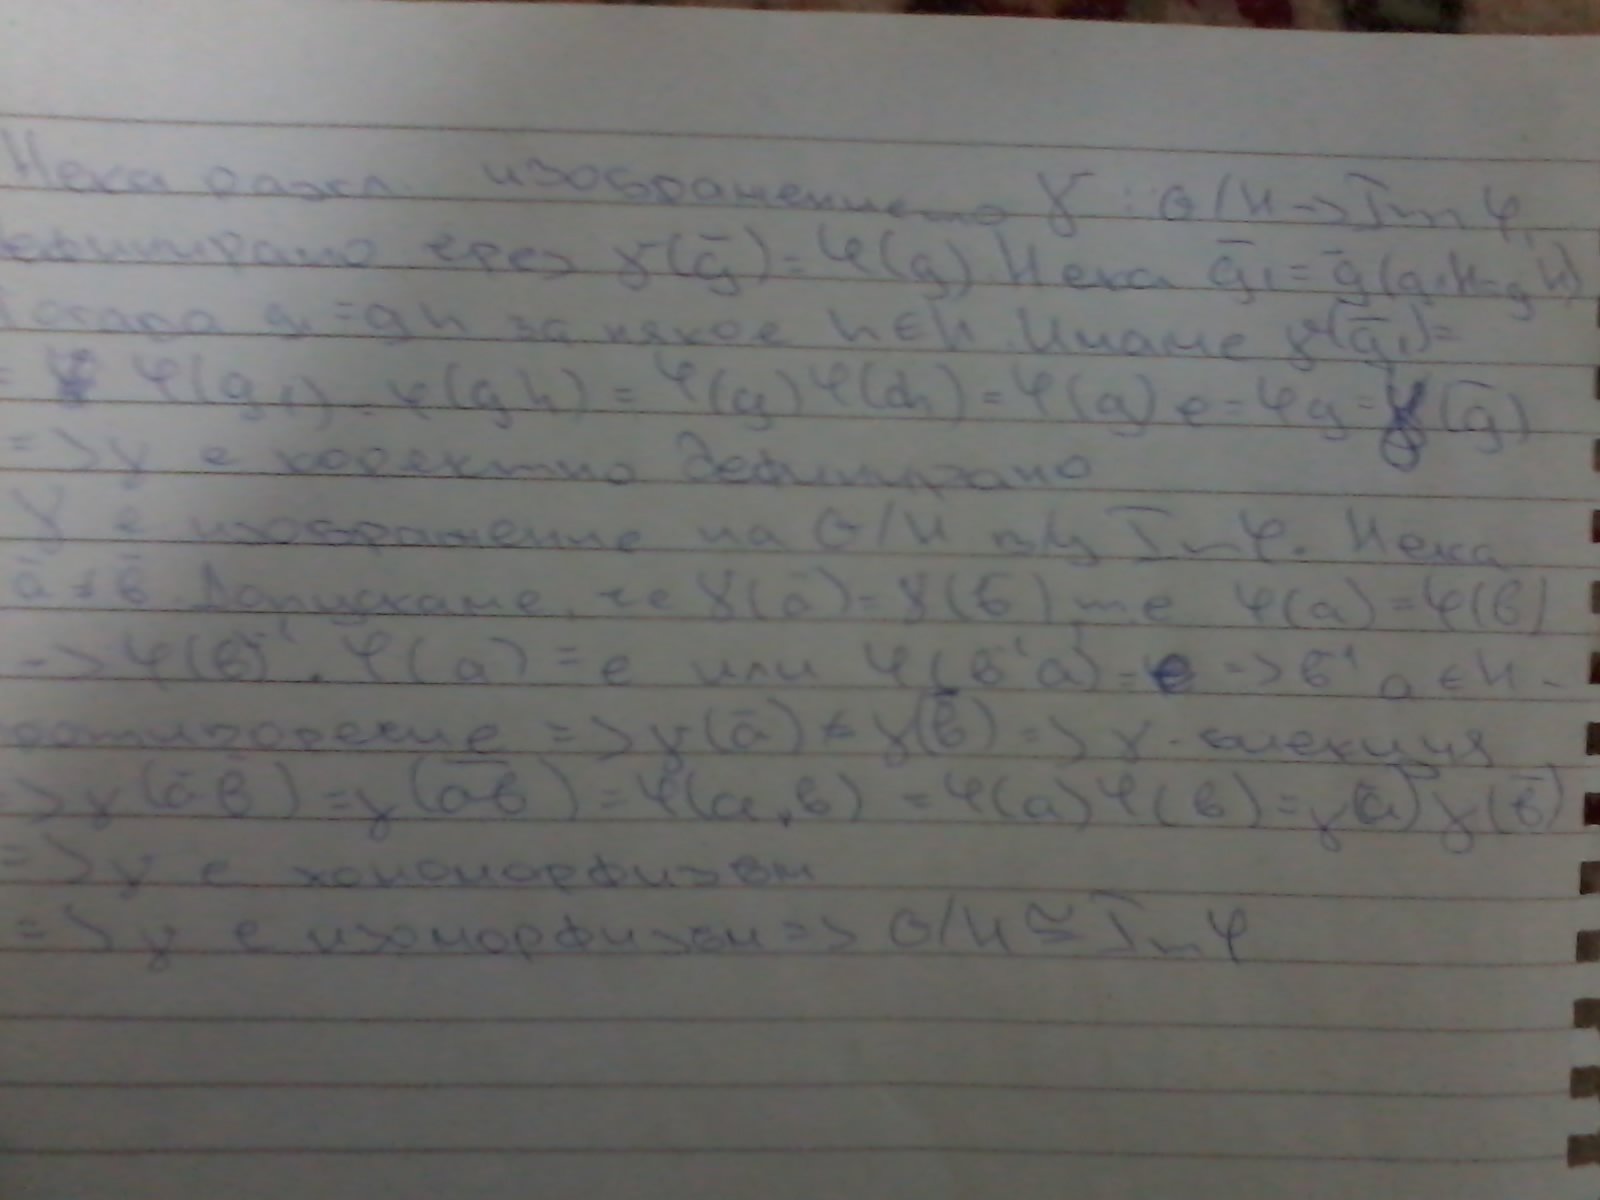 Нека разгл. изображението γ : G/H -> Im φ,
дефинирано чрез γ(ḡ) = φ(g). Нека ḡ₁ = ḡ (g₁H = gH)
Тогава g₁ = gh за някое h∈H. Имаме γ(ḡ₁) =
= φ(g₁) = φ(gh) = φ(g)φ(h) = φ(g) e = φg = γ(ḡ)
=> γ е коректно дефинирано
γ е изображение на G/H в/у Im φ. Нека
ā ≠ b̄. Допускаме, че γ(ā) = γ(b̄) т.е φ(a) = φ(b)
-> φ(b)⁻¹. φ(a) = e или φ(b⁻¹a) = e -> b⁻¹a ∈ H -
противоречие => γ(ā) ≠ γ(b̄) => γ - биекция
=> γ(ā b̄) = γ(a̅b̅) = φ(a.b) = φ(a)φ(b) = γ(ā) γ(b̄)
=> γ е хомоморфизъм
=> γ е изоморфизъм => G/H ≅ Im φ